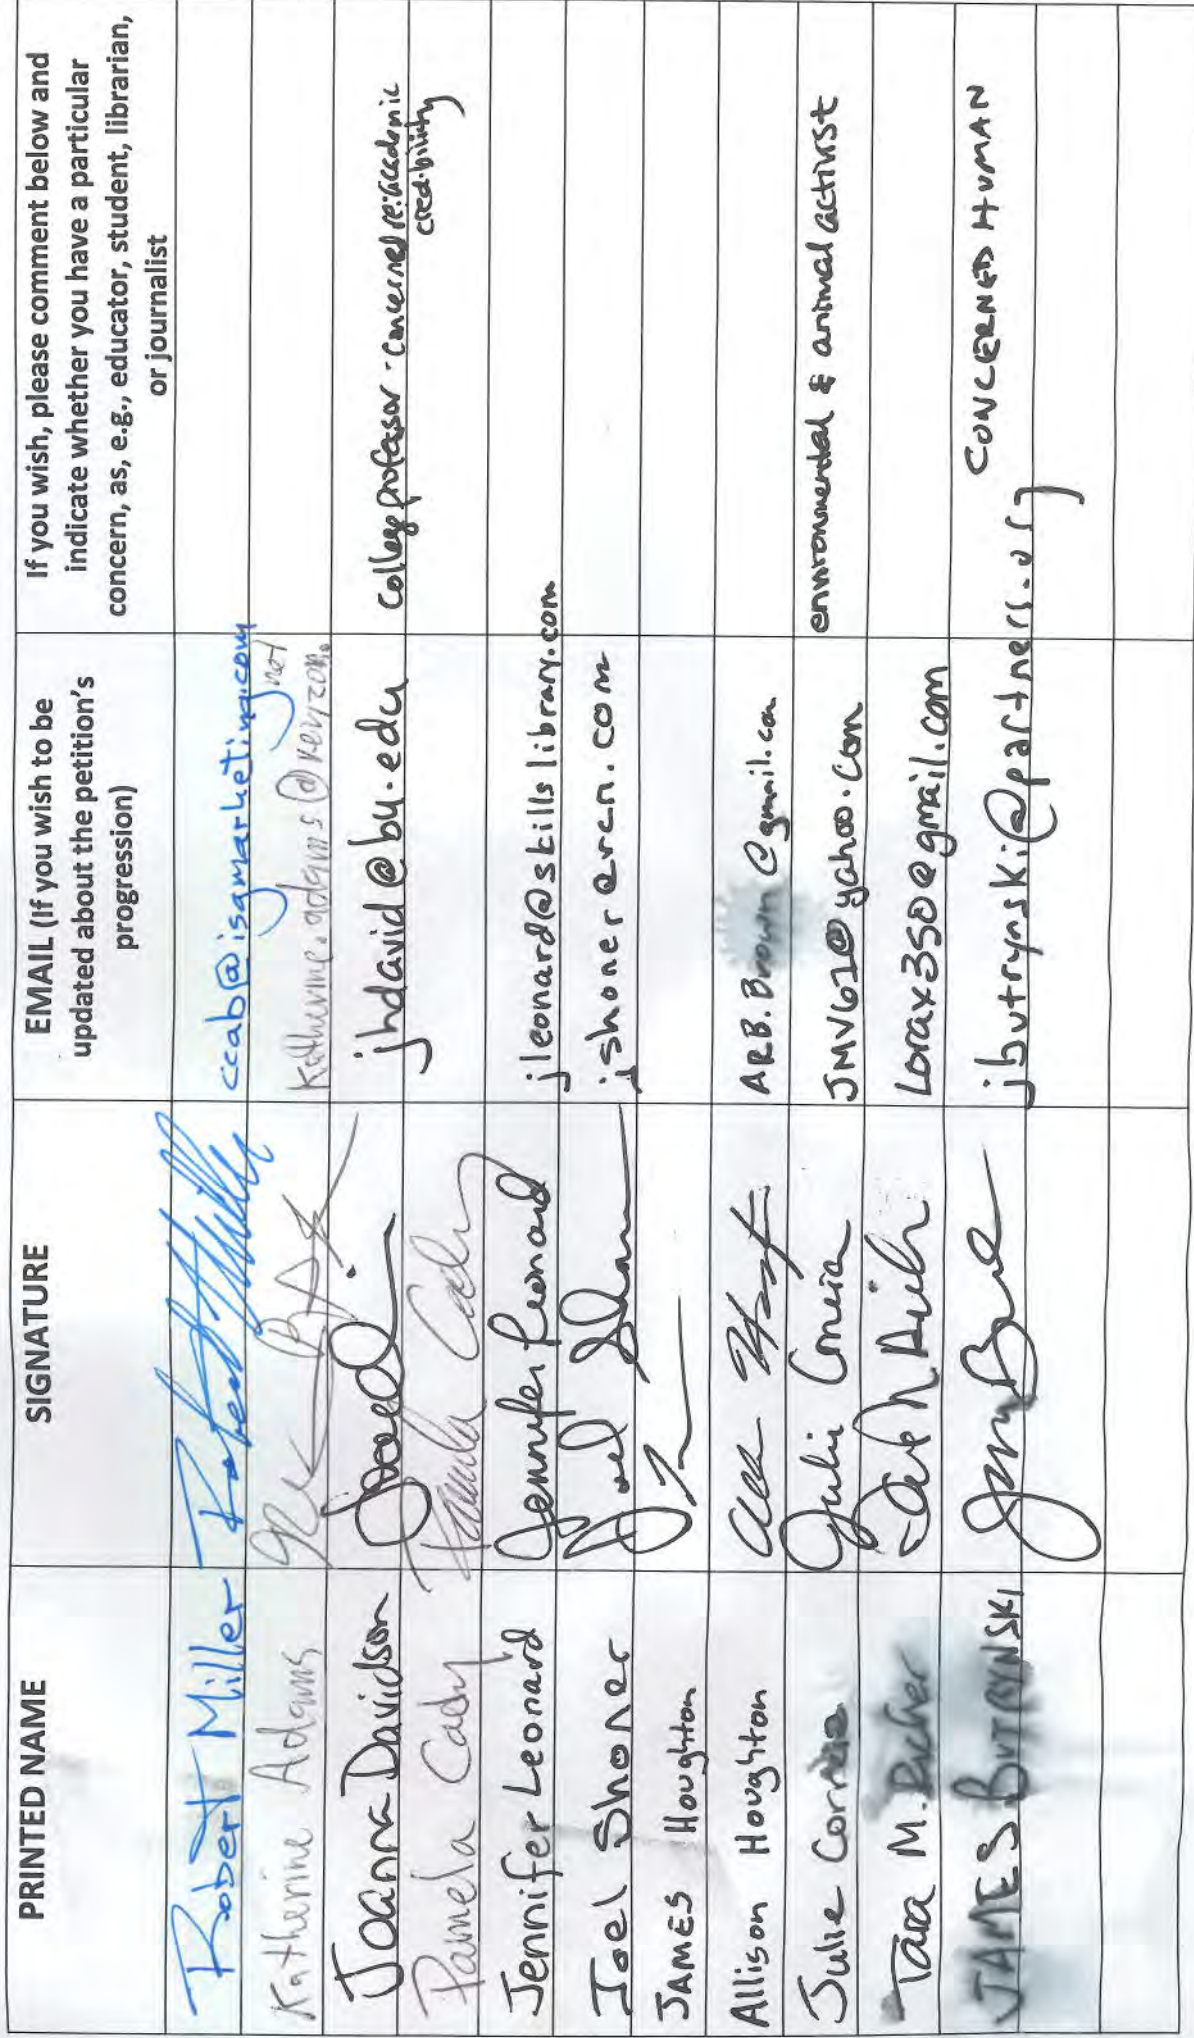 PRINTED NAME
SIGNATURE
EMAIL (If you wish to be
updated about the petition's
progression)
If you wish, please comment below and
indicate whether you have a particular
concern, as, e.g., educator, student, librarian,
or journalist
Robert Miller
ccab@isgmarketing.com
Katherine Adams
Katherine.adams@verizon.
net
Joanna Davidson
jhdavid@bu.edu
college professor - concerned re: academic
credibility
Pamela Cady
Pamela Cady
Jennifer Leonard
Jennifer Leonard
jleonard@skillslibrary.com
Joel Shoner
Joel
jshoner@rcn.com
JAMES Houghton
Allison Houghton
ARB.Brown@gmail.com
Julie Correia
Julie Correia
JMV61@yahoo.com
environmental & animal activist
Tara M.
Lorax350@gmail.com
JAMES BUTRYNSKI
jbutrynski@partners.org
CONCERNED HUMAN